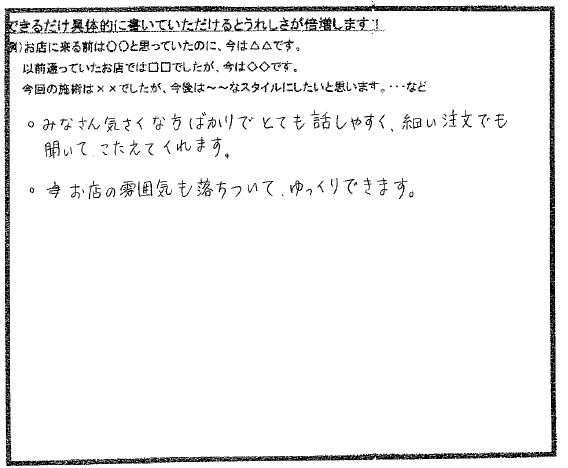 できるだけ具体的に書いていただけるとうれしさが倍増します！
例）お店に来る前は〇〇と思っていたのに、今は△△です。
以前通っていたお店では□□でしたが、今は◇◇です。
今回の施術は××でしたが、今後は～～なスタイルにしたいと思います。…など
。みなさん気さくな方ばかりでとても話しやすく、細い注文でも
聞いて、こたえてくれます。
。お店の雰囲気も落ちついて、ゆっくりできます。